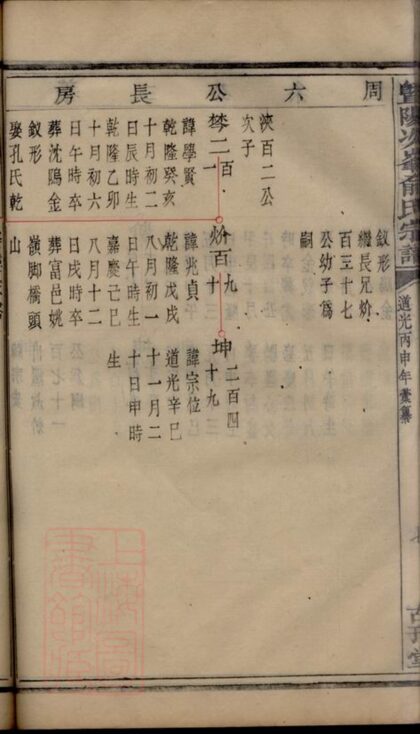 周六公長房
暨陽次峯俞氏宗譜
道光丙申年彙纂
釵形
繼長兄炌
百三十七
公幼子為
嗣
浹百二公
次子
二百一
諱學賢
乾隆癸亥
十月初二
日辰時生
乾隆乙卯
十月初六
日午時卒
葬沈鴎金
釵形
娶孔氏乾
炌百九十
諱兆貞
乾隆戊戌
八月初一
日午時生
嘉慶己巳
八月十二
日戌時卒
葬富邑姚
嶺脚橋頭
山
坤二百四十九
諱宗位
道光辛巳
十一月二
十日申時
生